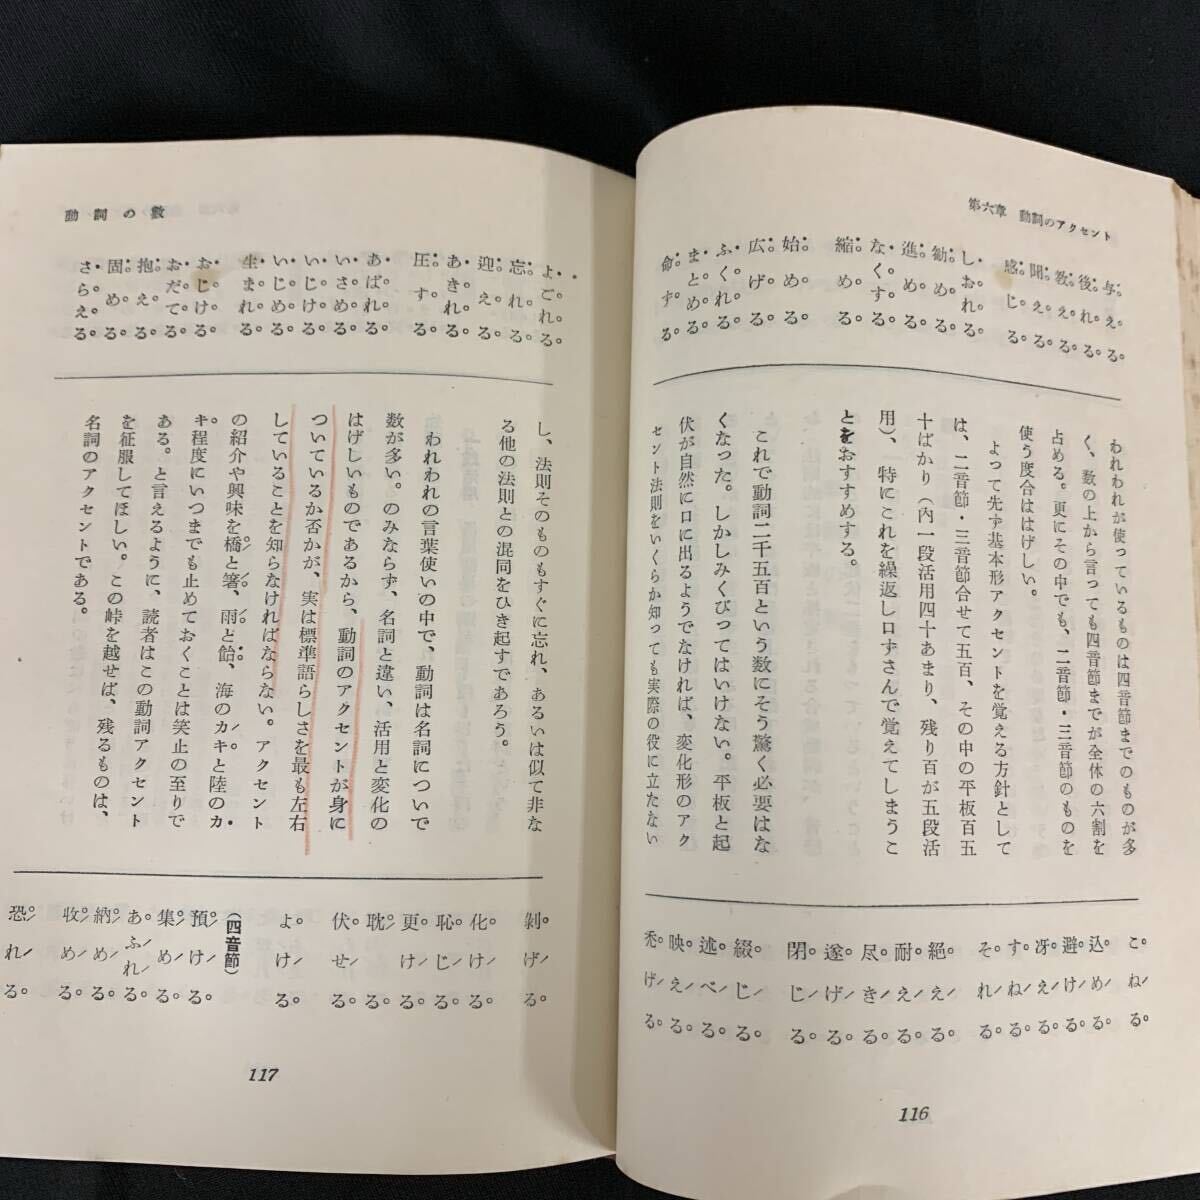 第六章 動詞のアクセント
与える
後れる
教える
聞える
感じる
しおれる
勧める
進める
なくする
縮める
始める
広げる
ふくれる
まとめる
命ずる
われわれが使っているものは四音節までのものが多
く、数の上から言っても四音節までが全体の六割を
占める。更にその中でも、二音節・三音節のものを
使う度合ははげしい。
よって先ず基本形アクセントを覚える方針として
は、二音節・三音節合せて五百、その中の平板百五
十ばかり（内一段活用四十あまり、残り百が五段活
用）、特にこれを繰返し口ずさんで覚えてしまうこ
とをおすすめする。
これで動詞二千五百という数にそう驚く必要はな
くなった。しかしみくびってはいけない。平板と起
伏が自然に口に出るようでなければ、変化形のアク
セント法則をいくらか知っても実際の役に立たない
こねる
込める
避ける
冴える
すねる
それる
絶える
耐える
尽きる
遂げる
閉じる
綴じる
述べる
映える
禿げる
116
動詞の数
よごれる
忘れる
迎える
あきれる
圧する
あばれる
いさめる
いじける
いじめる
生まれる
おじける
おだてる
抱える
固める
さらえる
し、法則そのものもすぐに忘れ、あるいは似て非な
る他の法則との混同をひき起すであろう。
われわれの言葉使いの中で、動詞は名詞についで
数が多い。のみならず、名詞と違い、活用と変化の
はげしいものであるから、動詞のアクセントが身に
ついているか否かが、実は標準語らしさを最も左右
していることを知らなければならない。アクセント
の紹介や興味を橋と箸、雨と飴、海のカキと陸のカ
キ程度にいつまでも止めておくことは笑止の至りで
ある。と言えるように、読者はこの動詞アクセント
を征服してほしい。この峠を越せば、残るものは、
名詞のアクセントである。
剝げる
化ける
恥じる
更ける
耽る
伏せる
よける
（四音節）
預ける
集める
あふれる
納める
収める
恐れる
117